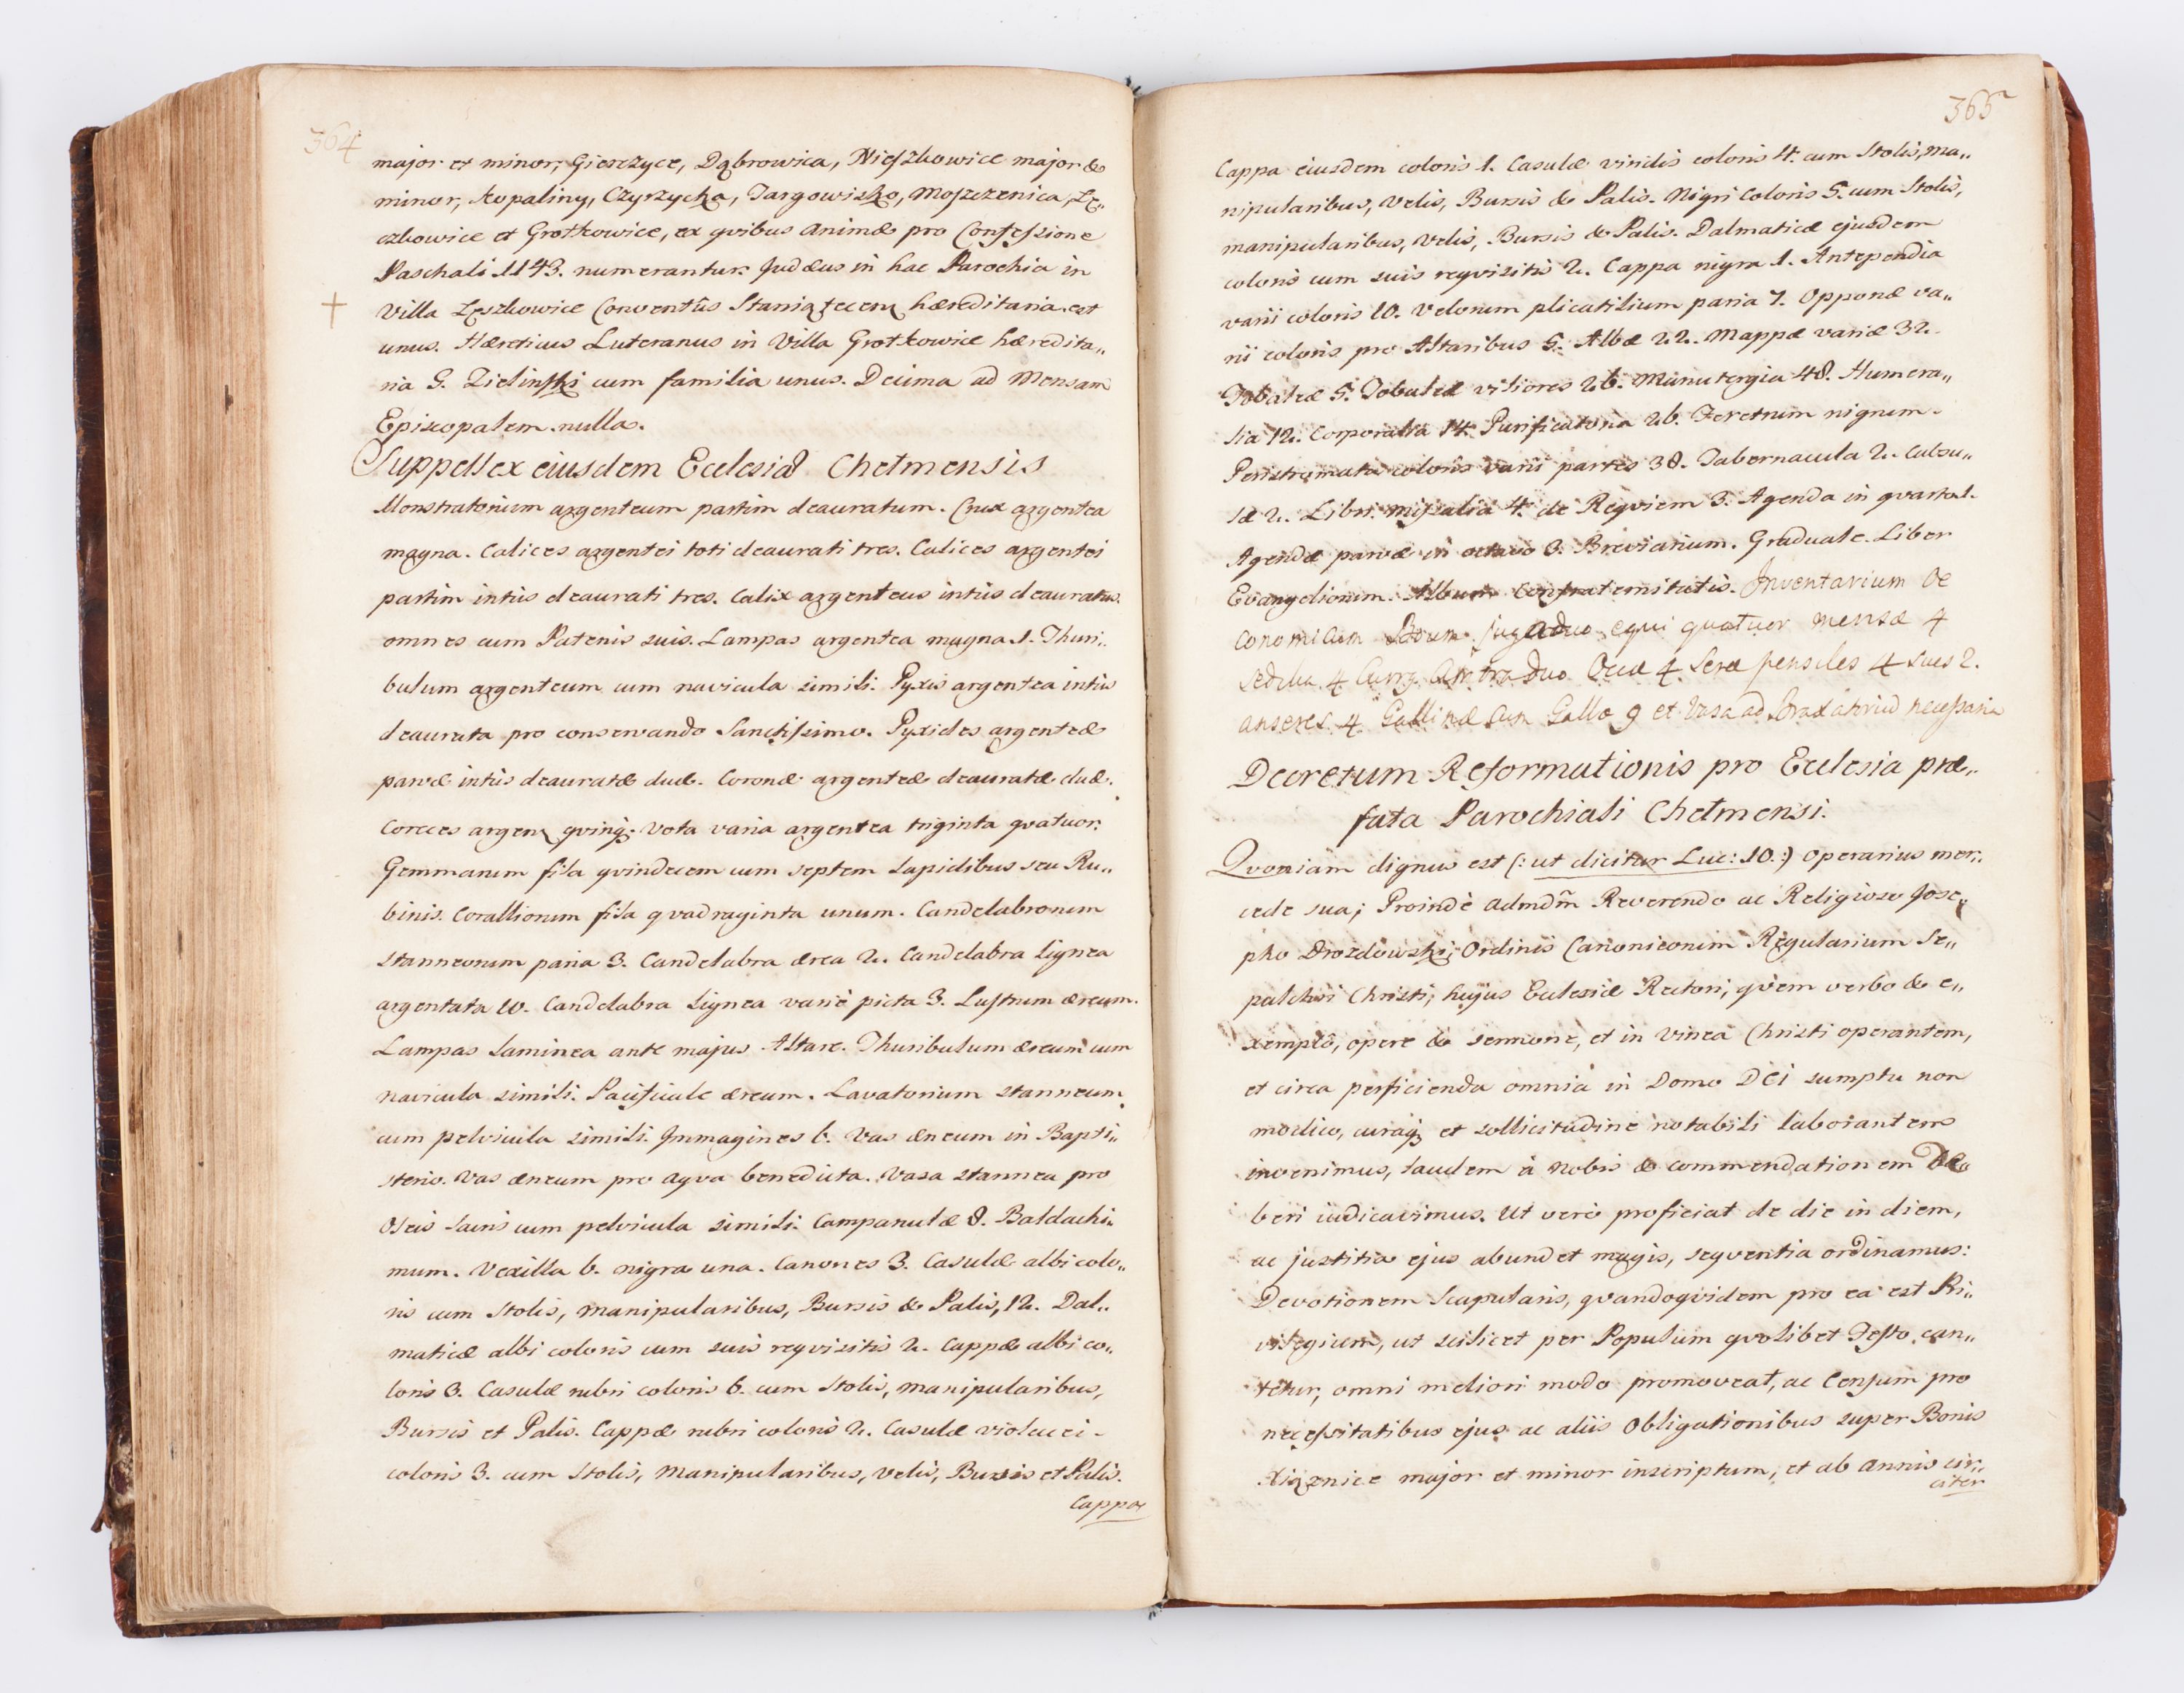 364
major et minor, Gierczyce, Dąbrowica, Nieszkowice major &
minor, Kopaliny, Czyrzyczka, Targowisko, Moszczenica, Łę„
czkowice et Grotkowice, ex qvibus animæ pro Confessione
Paschali 1143. numerantur. Judæus in hac Parochia in
+ Villa Łęszkowice Conventûs Staniątecen hæreditaria est
unus. Hæreticus Luteranus in Villa Grotkowice hæredita„
ria G. Zielinski cum familia unus. Decima ad Mensam
Episcopalem nulla.
Suppellex eiusdem Ecclesiæ Chełmensis
Monstratorium argenteum partim deauratum. Crux argentea
magna. Calices argentei toti deaurati tres. Calices argentei
partim intùs deaurati tres. Calix argenteus intùs deauratus.
omnes cum Patenis suis. Lampas argentea magna 1. Thuri„
bulum argenteum cum navicula simili. Pyxis argentea intùs
deaurata pro conservando Sanctissimo. Pyxides argenteæ
parvæ intùs deauratæ duæ. Coronæ argenteæ deauratæ duæ.
Coreces argen qvinq; Vota varia argentea triginta qvatuor.
Gemmarum fila qvindecem cum septem Lapidibus seu Ru„
binis. Corallionum fila qvadraginta unum. Candelabrorum
stanneorum paria 3. Candelabra ærea 2. Candelabra Lignea
argentata 10. Candelabra Lignea variè picta 3. Lustrum æreum.
Lampas Laminea ante majus Altare. Thuribulum æreum cum
navicula simili. Pacificale æreum. Lavatorium stanneum
cum pelvicula simili. Immagines 6. Vas æneum in Bapti„
sterio. Vas æneum pro aqva benedicta. Vasa stannea pro
Oleis sacris cum pelvicula simili. Campanulæ 8. Baldachi„
mum. Vexilla 6. nigra una. Canones 3. Casulæ albi colo„
ris cum Stolis, manipularibus, Bursis & Palis, 12. Dal„
maticæ albi coloris cum suis reqvisitis 2. Cappæ albi co„
loris 3. Casulæ rubri coloris 6. cum Stolis, manipularibus,
Bursis et Palis. Cappæ rubri coloris 2. Casulæ violacei
coloris 3. cum Stolis, Manipularibus, velis, Bursis et Palis.
Cappa
365
Cappa eiusdem coloris 1. Casulæ viridis coloris 4. cum Stolis, ma„
nipularibus, Velis, Bursis & Palis. Nigri Coloris 5. cum Stolis,
manipularibus, Velis, Bursis & Palis. Dalmaticæ ejusdem
coloris cum suis reqvisitis 2. Cappa nigra 1. Antependia
varii coloris 10. Velorum plicatilium paria 7. Opponæ va„
rii coloris pro Altaribus 5. Albæ 22. Mappæ variæ 32.
Tobaleæ 5. Tobaleæ viliores 26. Manutergia 48. Humera„
lia 12. Corporalia 14. Purificatoria 26. Feretrum nigrum.
Peristromata coloris varii partes 38. Tabernacula 2. Cabsu„
læ 2. Libri missalia 4. de Reqviem 3. Agenda in qvarto 1.
Agendæ parvæ in octavo 3. Breviarium. Graduale. Liber
Evangeliorum. Album Confraternitatis. Inventarium Oe
conomicum Boum juga duo equi quatuor mensæ 4
Sedilia 4 Aratra duo Occæ 4 Seræ pensiles 4 Sues 2.
anseres 4 Gallinæ cum Gallo 9 et Vasa ad necessaria
Decretum Reformationis pro Ecclesia præ„
fata Parochiali Chełmensi.
Qvoniam dignus est (: ut dicitur Luc: 10.:) operarius mer„
cede sua; Proindè admdm̃ Reverendo ac Religioso Jose„
pho Drozdowski, Ordinis Canonicorum Regularium Se„
pulchri Christi, hujus Ecclesiæ Rectori, qvem verbo & e„
xemplô, opere & sermone, et in vinea Christi operantem,
et circa perficienda omnia in Domo DEI sumptu non
modico, curâq; et sollicitudine notabili laborantem
invenimus, laudem à nobis & commendationem De
beri iudicavimus. Ut verò proficiat de die in diem,
ac justitia ejus abundet magis, seqventia ordinamus:
Devotionem Scapularis, qvandoqvidem pro ea est Pri„
vilegium, ut scilicet per Populum qvolibet Festo can„
tetur, omni meliori modo promoveat, ac Censum pro
necessitatibus ejus ac aliis Obligationibus super Bonis
Xiąznice major et minor inscriptum, et ab annis cir„
citer